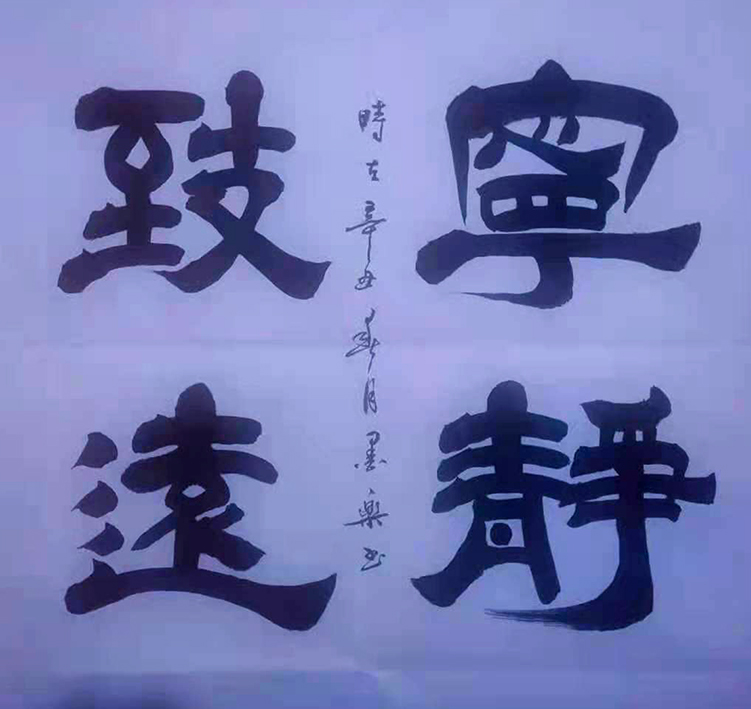 寧靜
致遠
時在辛丑春月墨樂书